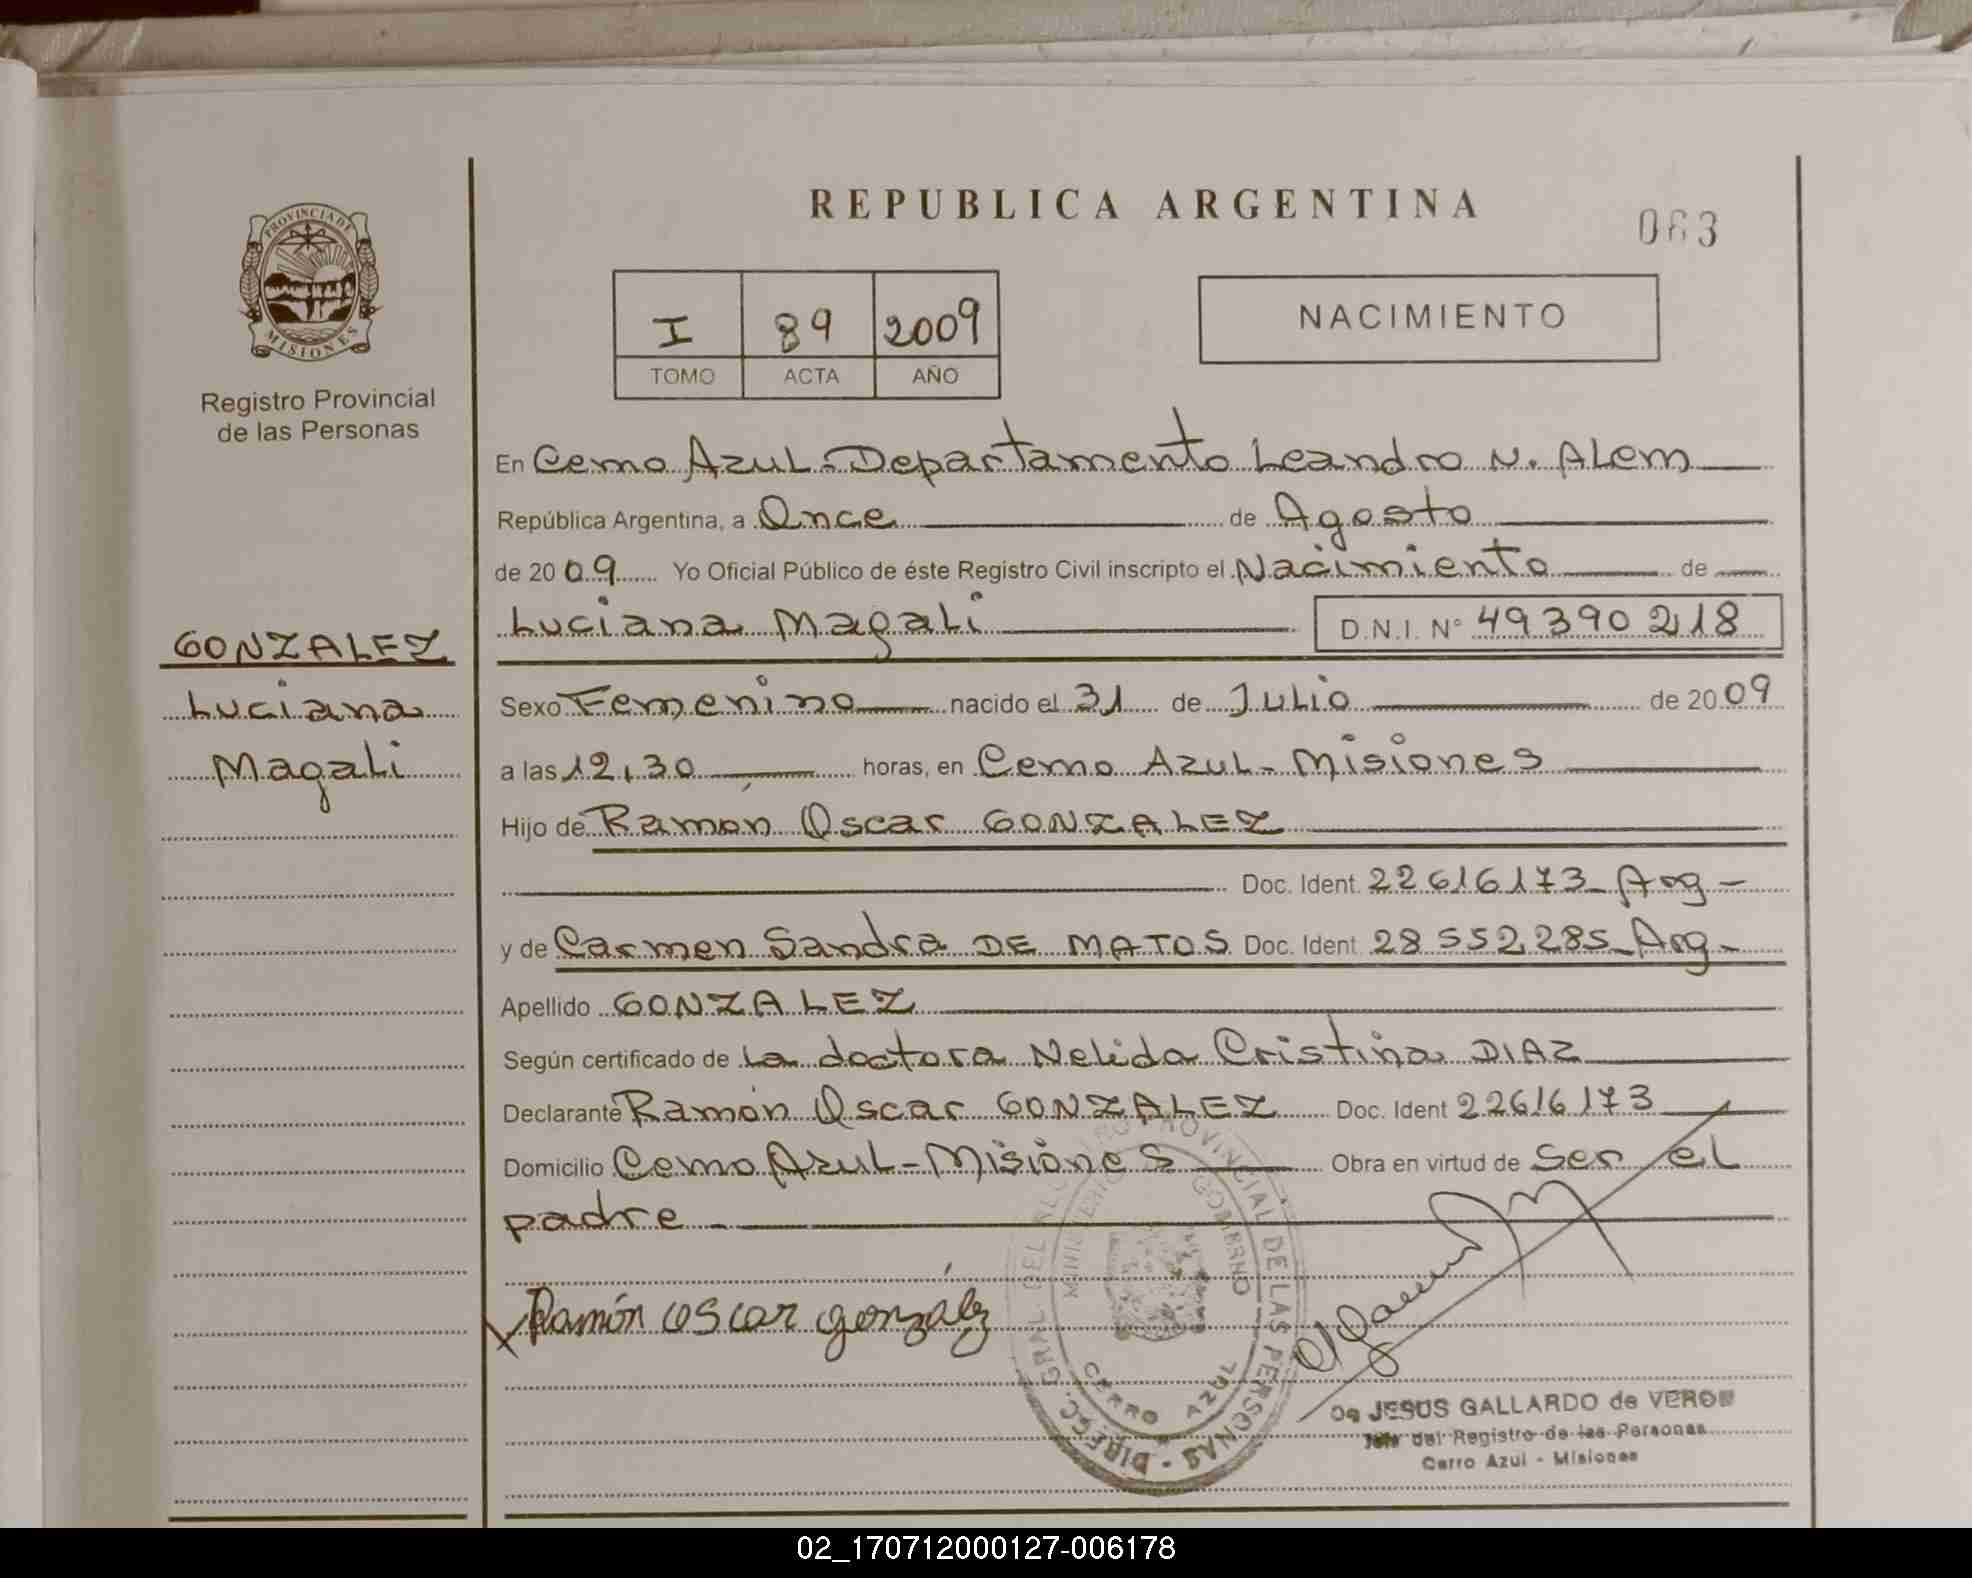 REPUBLICA ARGENTINA
063
PROVINCIA DE
MISIONES
Registro Provincial
de las Personas
I 89 2009
TOMO ACTA AÑO
NACIMIENTO
En Cerro Azul - Departamento Leandro N. Alem
República Argentina, a Once de Agosto
de 2009 Yo Oficial Público de éste Registro Civil inscripto el Nacimiento de
Luciana Magali D.N.I. Nº 49390218
GONZALEZ
Luciana
Magali
Sexo Femenino nacido el 31 de Julio de 2009
a las 12,30 horas, en Cerro Azul - Misiones
Hijo de Ramón Oscar GONZALEZ
Doc. Ident. 22616173 - Arg -
y de Carmen Sandra DE MATOS Doc. Ident. 28552285 - Arg -
Apellido GONZALEZ
Según certificado de la doctora Nelida Cristina DIAZ
Declarante Ramón Oscar GONZALEZ Doc. Ident 22616173
Domicilio Cerro Azul - Misiones Obra en virtud de ser el
padre -
X Ramón Oscar gonzález
DIREC. GRAL DEL REGISTRO PROVINCIAL DE LAS PERSONAS
MINISTERIO GOBIERNO
CERRO AZUL
JESUS GALLARDO de VERON
Jefe del Registro de las Personas
Cerro Azul - Misiones
02_170712000127-006178